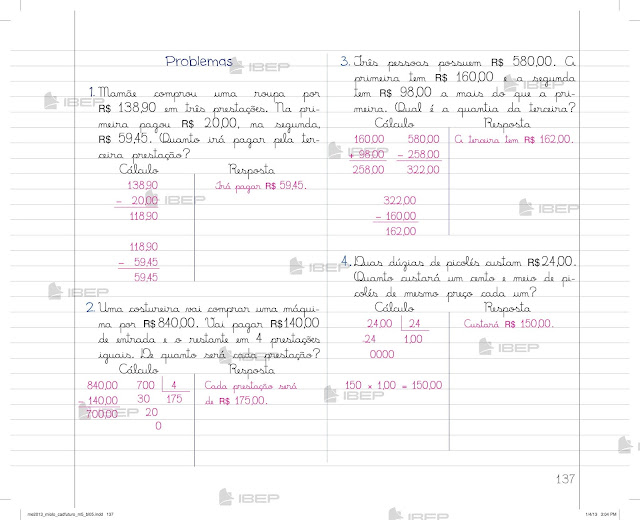 Problemas
1. Mamãe comprou uma roupa por
R$ 138,90 em três prestações. Na pri-
meira pagou R$ 20,00, na segunda,
R$ 59,45. Quanto irá pagar pela ter-
ceira prestação?
Cálculo Resposta
138,90 Irá pagar R$ 59,45.
– 20,00
118,90
118,90
– 59,45
59,45
2. Uma costureira vai comprar uma máqui-
na por R$ 840,00. Vai pagar R$ 140,00
de entrada e o restante em 4 prestações
iguais. De quanto será cada prestação?
Cálculo Resposta
840,00 700 4 Cada prestação será
– 140,00 30 175 de R$ 175,00.
700,00 20
0
3. Três pessoas possuem R$ 580,00. A
primeira tem R$ 160,00 e a segunda
tem R$ 98,00 a mais do que a pri-
meira. Qual é a quantia da terceira?
Cálculo Resposta
160,00 580,00 A terceira tem R$ 162,00.
+ 98,00 – 258,00
258,00 322,00
322,00
– 160,00
162,00
4. Duas dúzias de picolés custam R$ 24,00.
Quanto custará um cento e meio de pi-
colés de mesmo preço cada um?
Cálculo Resposta
24,00 24 Custará R$ 150,00.
24 1,00
0000
150 × 1,00 = 150,00
137
IBEP
IBEP
IBEP
IBEP
IBEP
IBEP
IBEP
IBEP
IBEP
IBEP
IBEP
IBEP
IBEP
1/4/13 2:54 PM